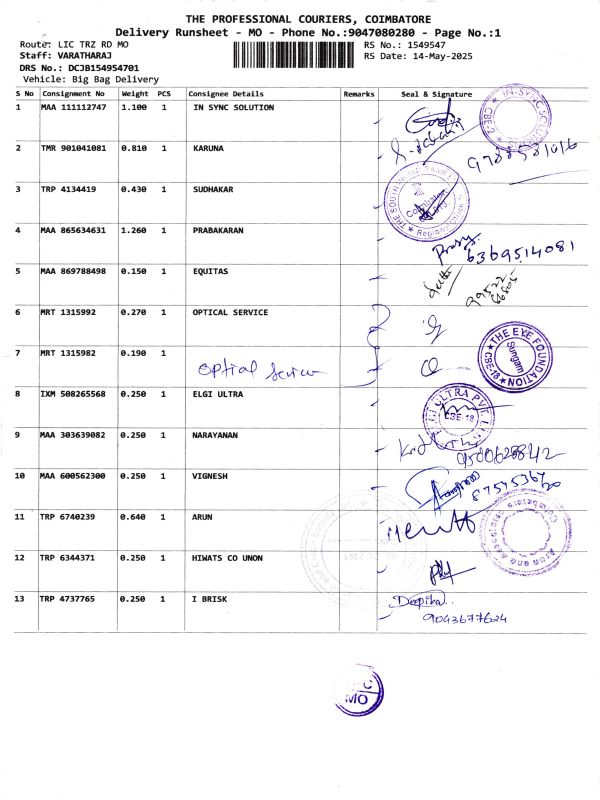 THE PROFESSIONAL COURIERS, COIMBATORE
Delivery Runsheet - MO - Phone No.:9047080280 - Page No.:1
Route: LIC TRZ RD MO
RS No.: 1549547
Staff: VARATHARAJ
RS Date: 14-May-2025
DRS No.: DCJB154954701
Vehicle: Big Bag Delivery
S No Consignment No Weight PCS Consignee Details Remarks Seal & Signature
1 MAA 111112747 1.100 1 IN SYNC SOLUTION
IN-SYNC SOLUTION CBE-2
2 TMR 901041081 0.810 1 KARUNA
3 TRP 4134419 0.430 1 SUDHAKAR
THE SOUTH Coimbatore Regional
4 MAA 865634631 1.260 1 PRABAKARAN
6369514081
5 MAA 869788498 0.150 1 EQUITAS
6 MRT 1315992 0.270 1 OPTICAL SERVICE
7 MRT 1315982 0.190 1
Optical Service
THE EYE FOUNDATION CBE-18 Sungam
8 IXM 508265568 0.250 1 ELGI ULTRA
ULTRA PVT. CBE-18
9 MAA 303639082 0.250 1 NARAYANAN
9500628842
10 MAA 600562300 0.250 1 VIGNESH
11 TRP 6740239 0.640 1 ARUN
12 TRP 6344371 0.250 1 HIWATS CO UNON
13 TRP 4737765 0.250 1 I BRISK
Deepika
9043677624
MO